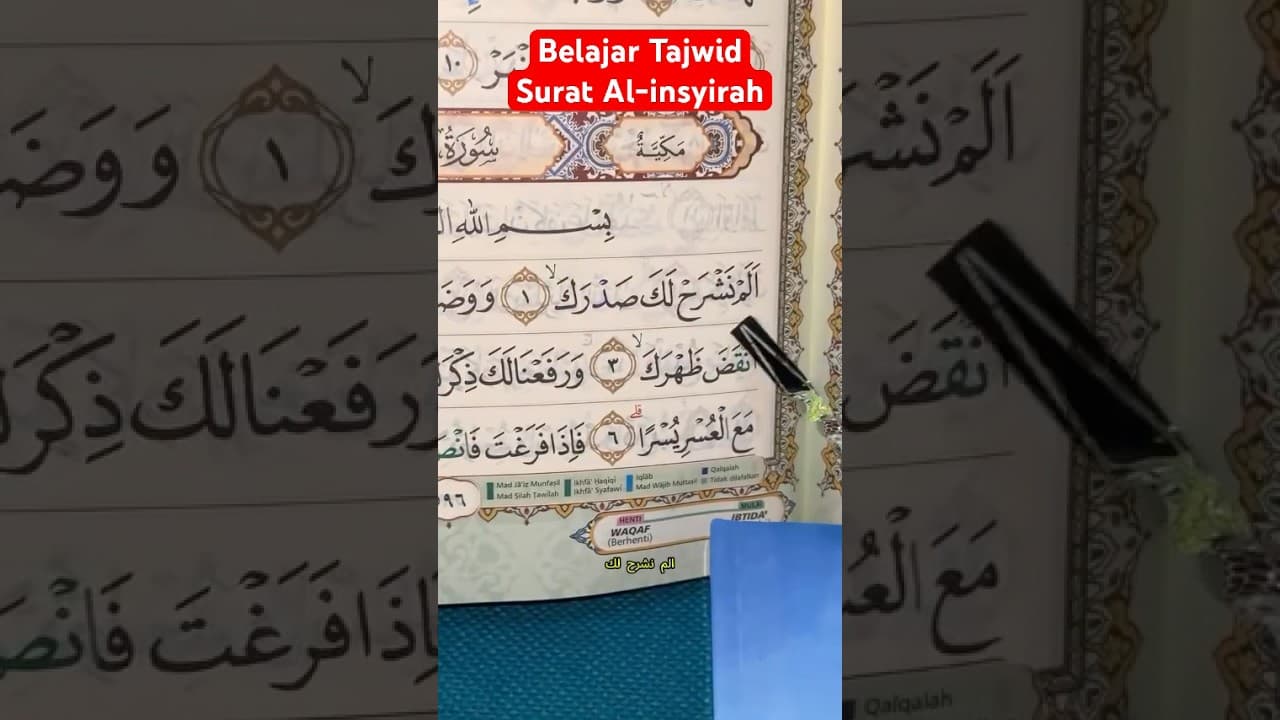 Belajar Tajwid
Surat Al-insyirah
١٠
سُوْرَةُ
مَكِّيَّةٌ
بِسْمِ اللّٰهِ
اَلَمْ نَشْرَحْ لَكَ صَدْرَكَۙ ١ وَوَضَ
اَنْقَضَ ظَهْرَكَۙ ٣ وَرَفَعْنَا لَكَ ذِكْرَ
مَعَ الْعُسْرِ يُسْرًاۗ ٦ فَاِذَا فَرَغْتَ فَانْصَ
Mad Jā'iz Munfaṣil
Mad Ṣilah Ṭawīlah
Ikhfā' Ḥaqīqī
Ikhfā' Syafawī
Iqlāb
Mad Wājib Muttaṣil
Qalqalah
Tidak dilafalkan
٩٦
HENTI
WAQAF
(Berhenti)
MULAI
IBTIDA'
الم نشرح لك